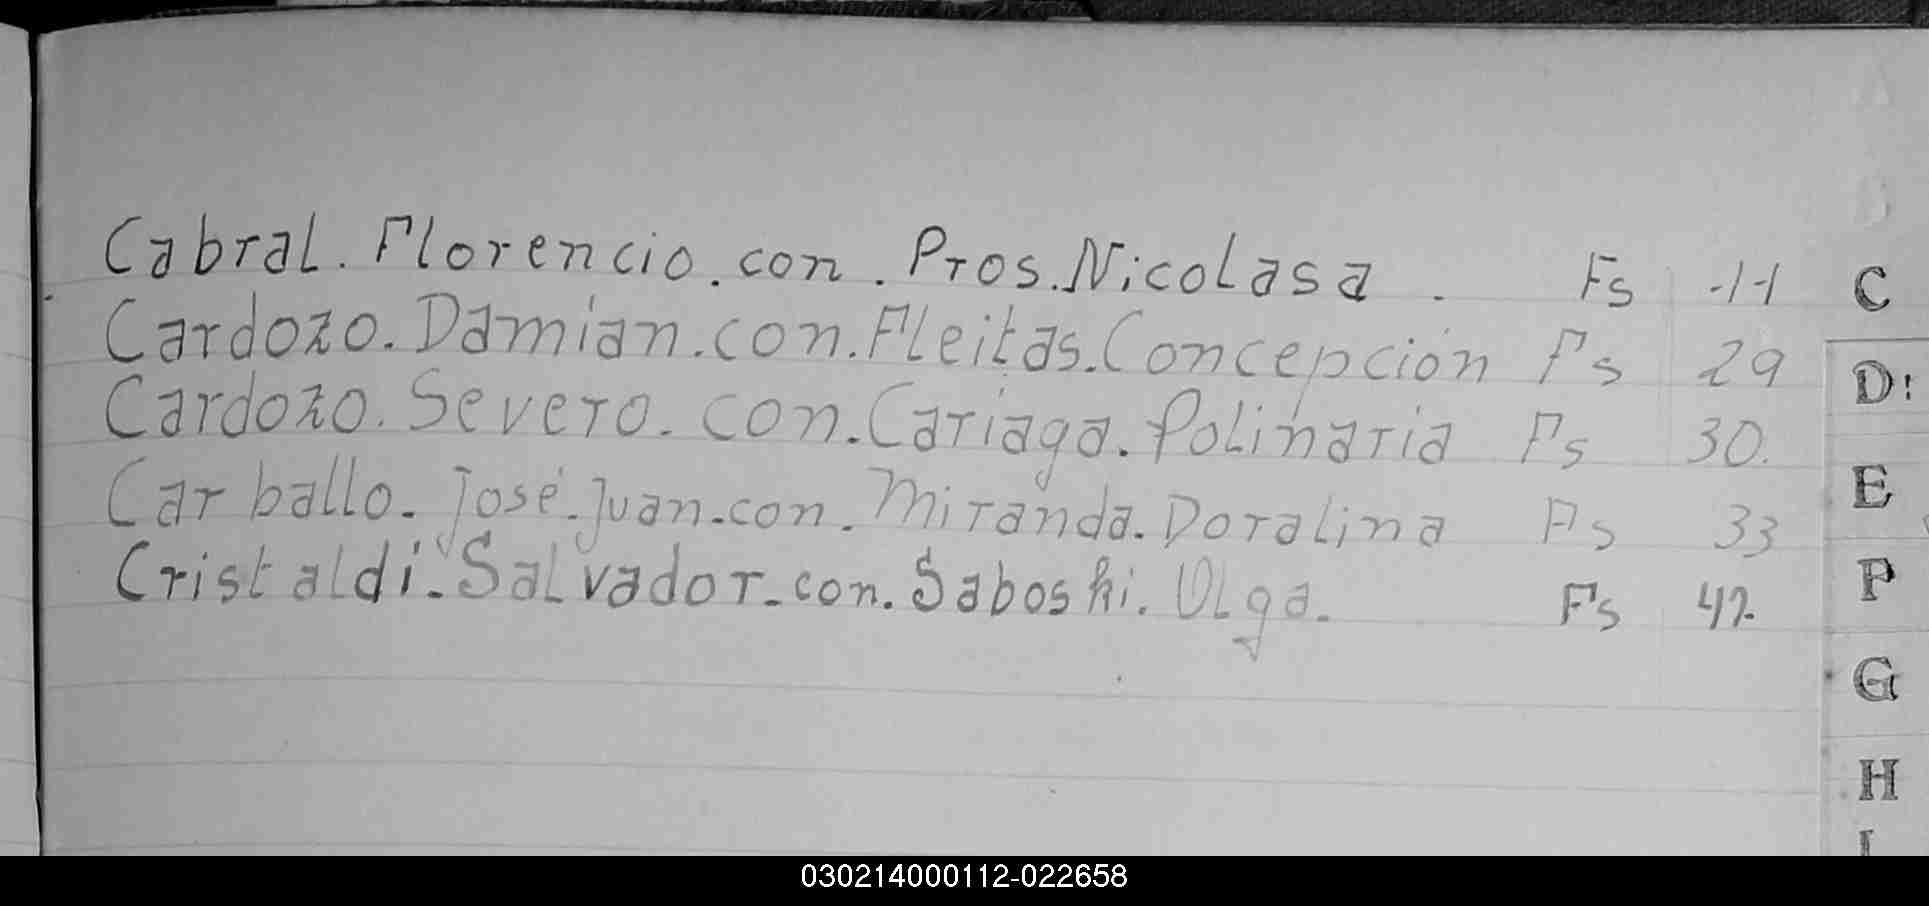 Cabral. Florencio. con. Pros. Nicolasa. Fs 11 C
Cardozo. Damian. con. Fleitas. Concepción Fs 29 D
Cardozo. Severo. con. Cariaga. Polinaria Fs 30. E
Carballo. José. Juan. con. Miranda. Doralina Fs 33
Cristaldi. Salvador. con. Saboski. Olga. Fs 42. P
G
H
I
030214000112-022658